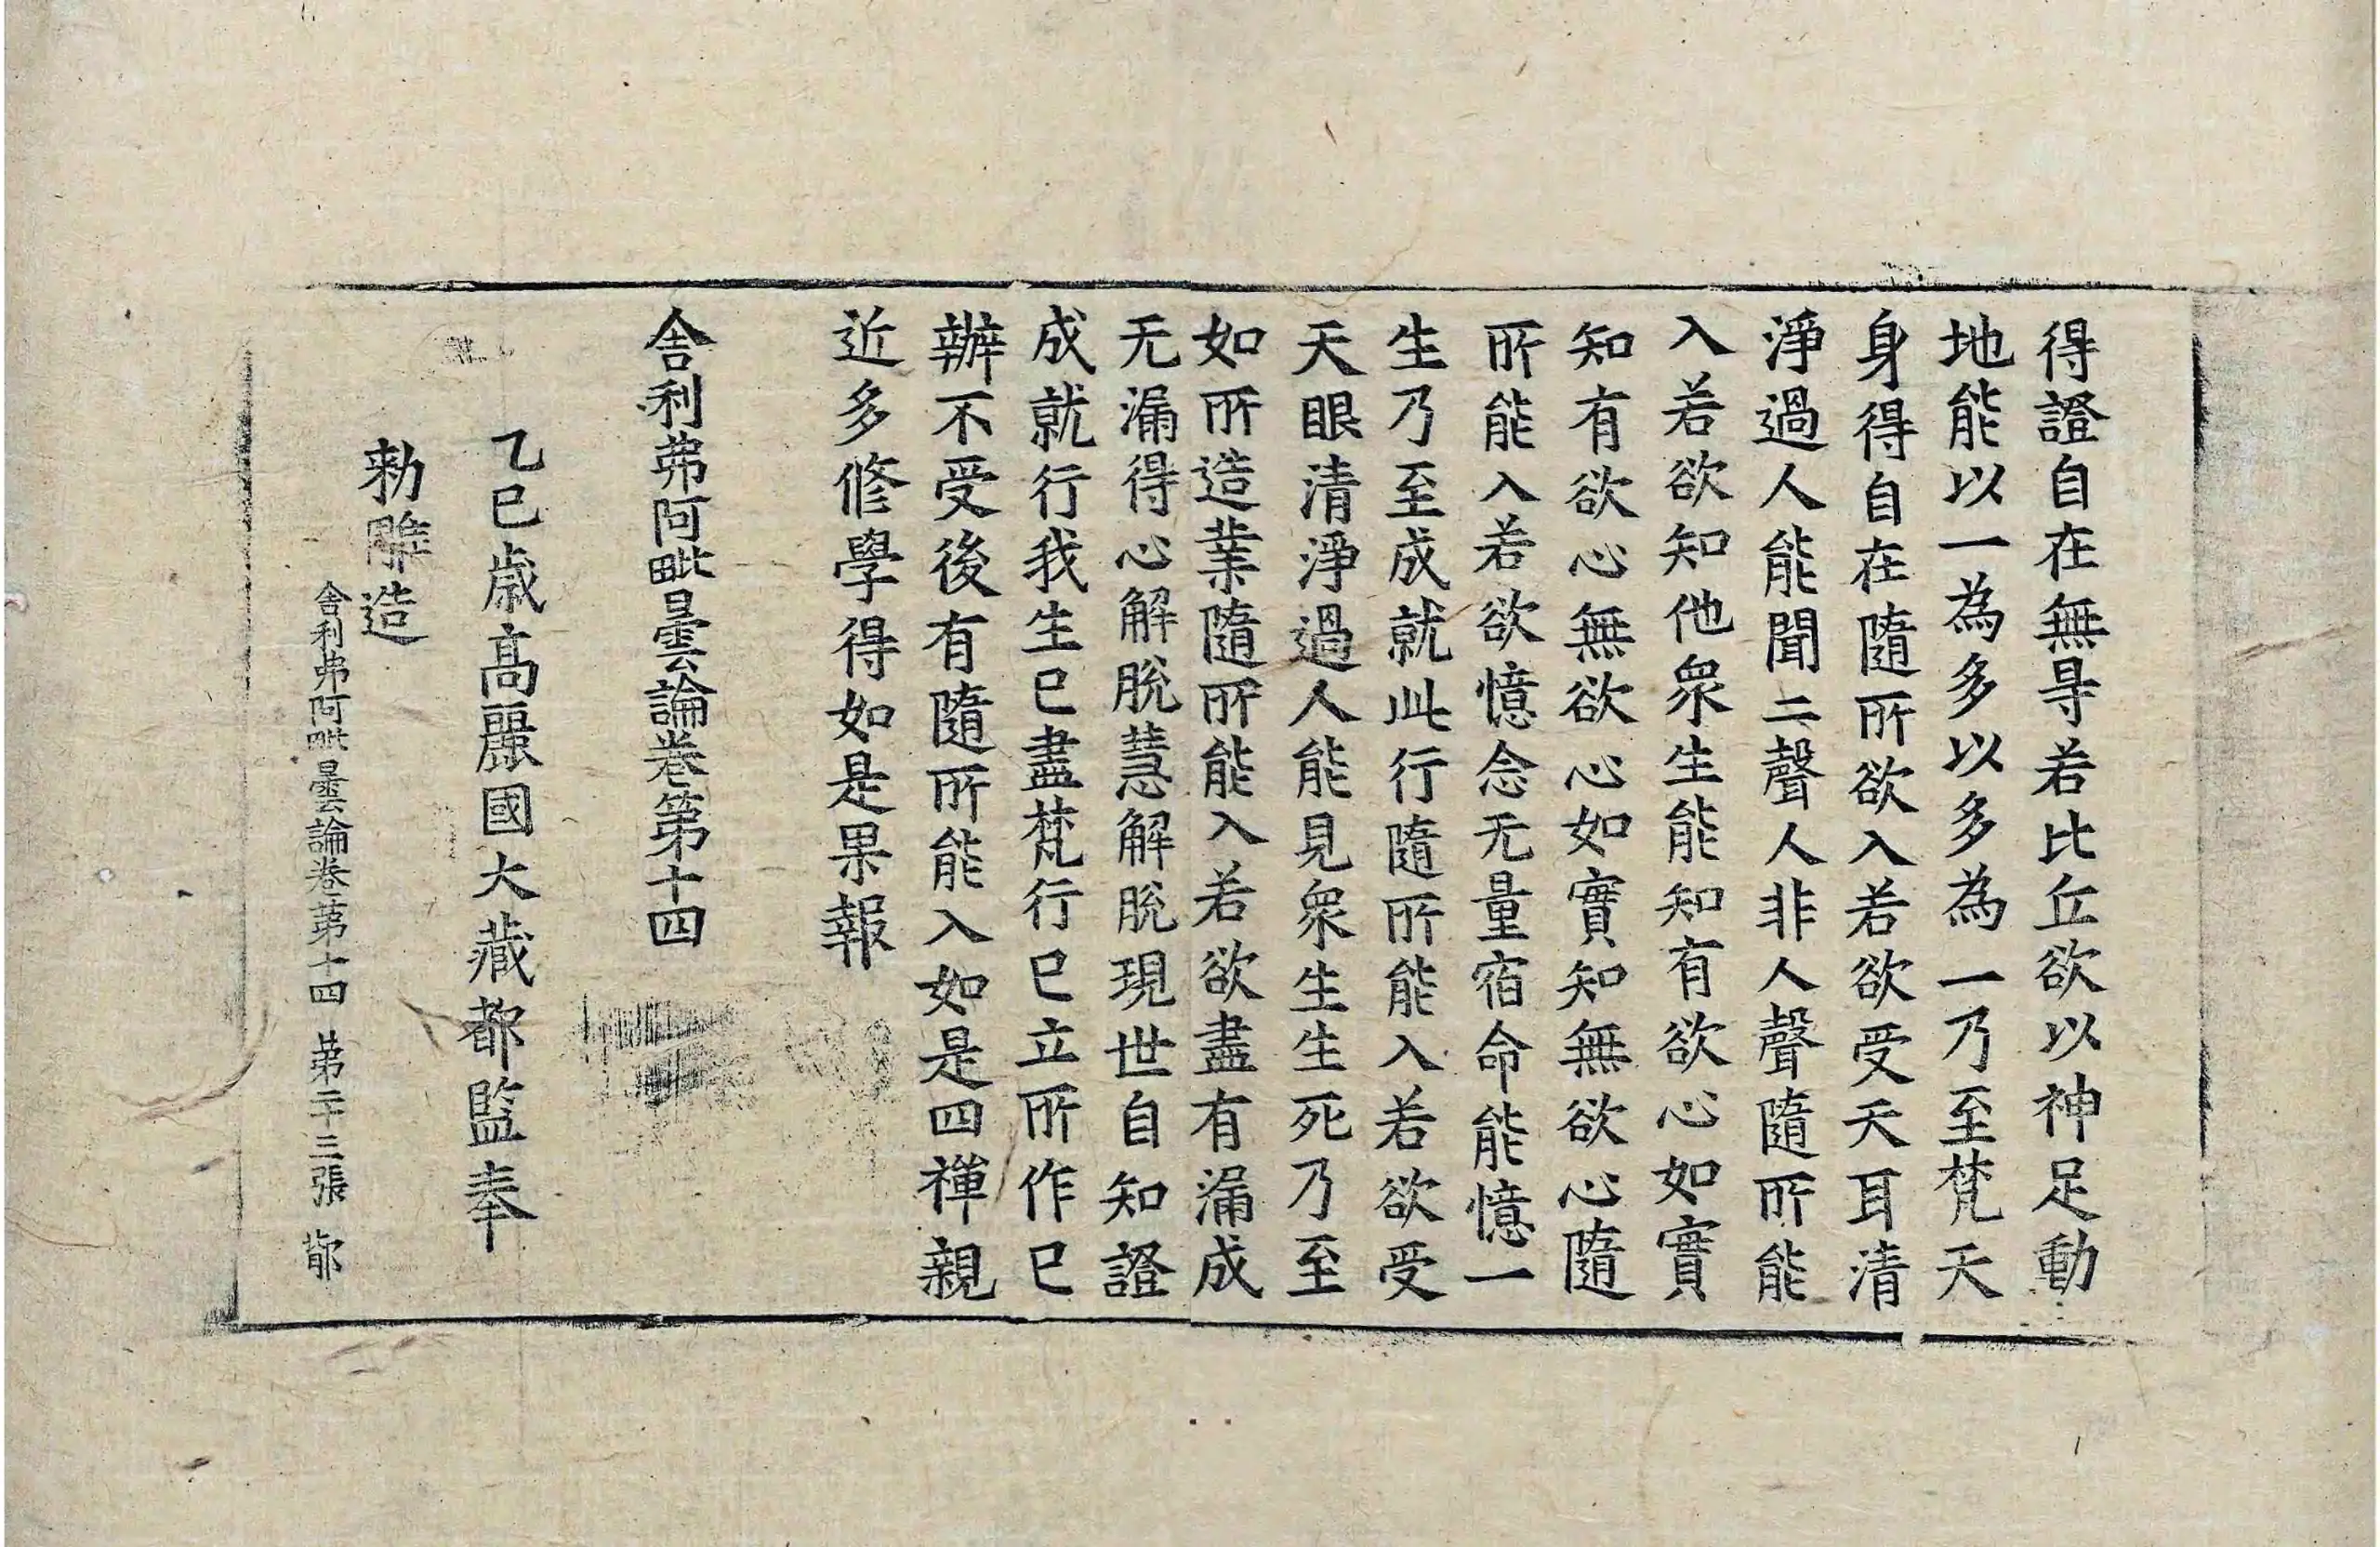 得證自在無㝵若比丘欲以神足動
地能以一為多以多為一乃至梵天
身得自在隨所欲入若欲受天耳清
淨過人能聞二聲人非人聲隨所能
入若欲知他衆生能知有欲心如實
知有欲心無欲心如實知無欲心隨
所能入若欲憶念无量宿命能憶一
生乃至成就此行隨所能入若欲受
天眼清淨過人能見衆生生死乃至
如所造業隨所能入若欲盡有漏成
无漏得心解脫慧解脫現世自知證
成就行我生已盡梵行已立所作已
辦不受後有隨所能入如是四禪親
近多修學得如是果報
舍利弗阿毗曇論卷第十四
乙巳歲高麗國大藏都監奉
勅雕造
舍利弗阿毗曇論卷第十四 第二十三張